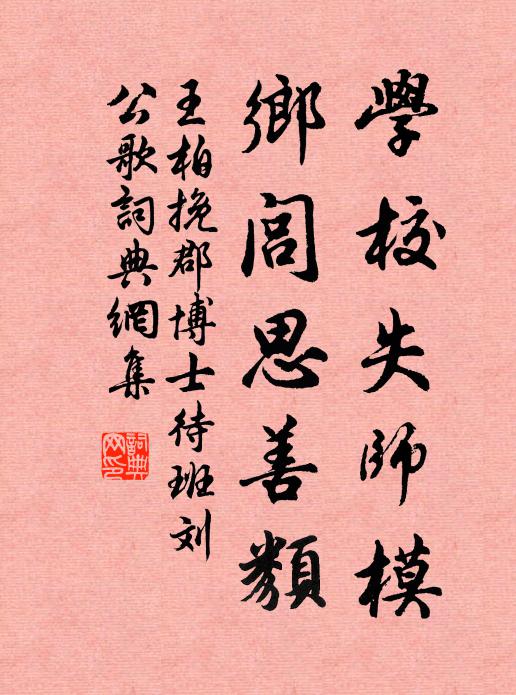 學校失師模
鄉閭思善類
王柏挽郡博士待班刘
公歌詞典網集
詞典
网印